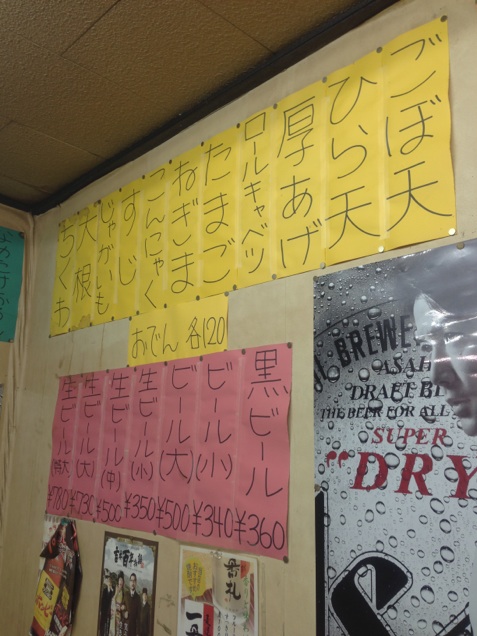 ごぼ天
ひら天
厚あげ
ロールキャベツ
たまご
ねぎま
こんにゃく
すじ
じゃがいも
大根
ちくわ
おでん 各120
黒ビール ¥360
ビール(小) ¥340
ビール(大) ¥500
生ビール(小) ¥350
生ビール(中) ¥500
生ビール(大) ¥730
生ビール(特大) ¥780
BREWE
ASAH
DRAFT BE
THE BEER FOR ALL
SUPER
"DRY
番札